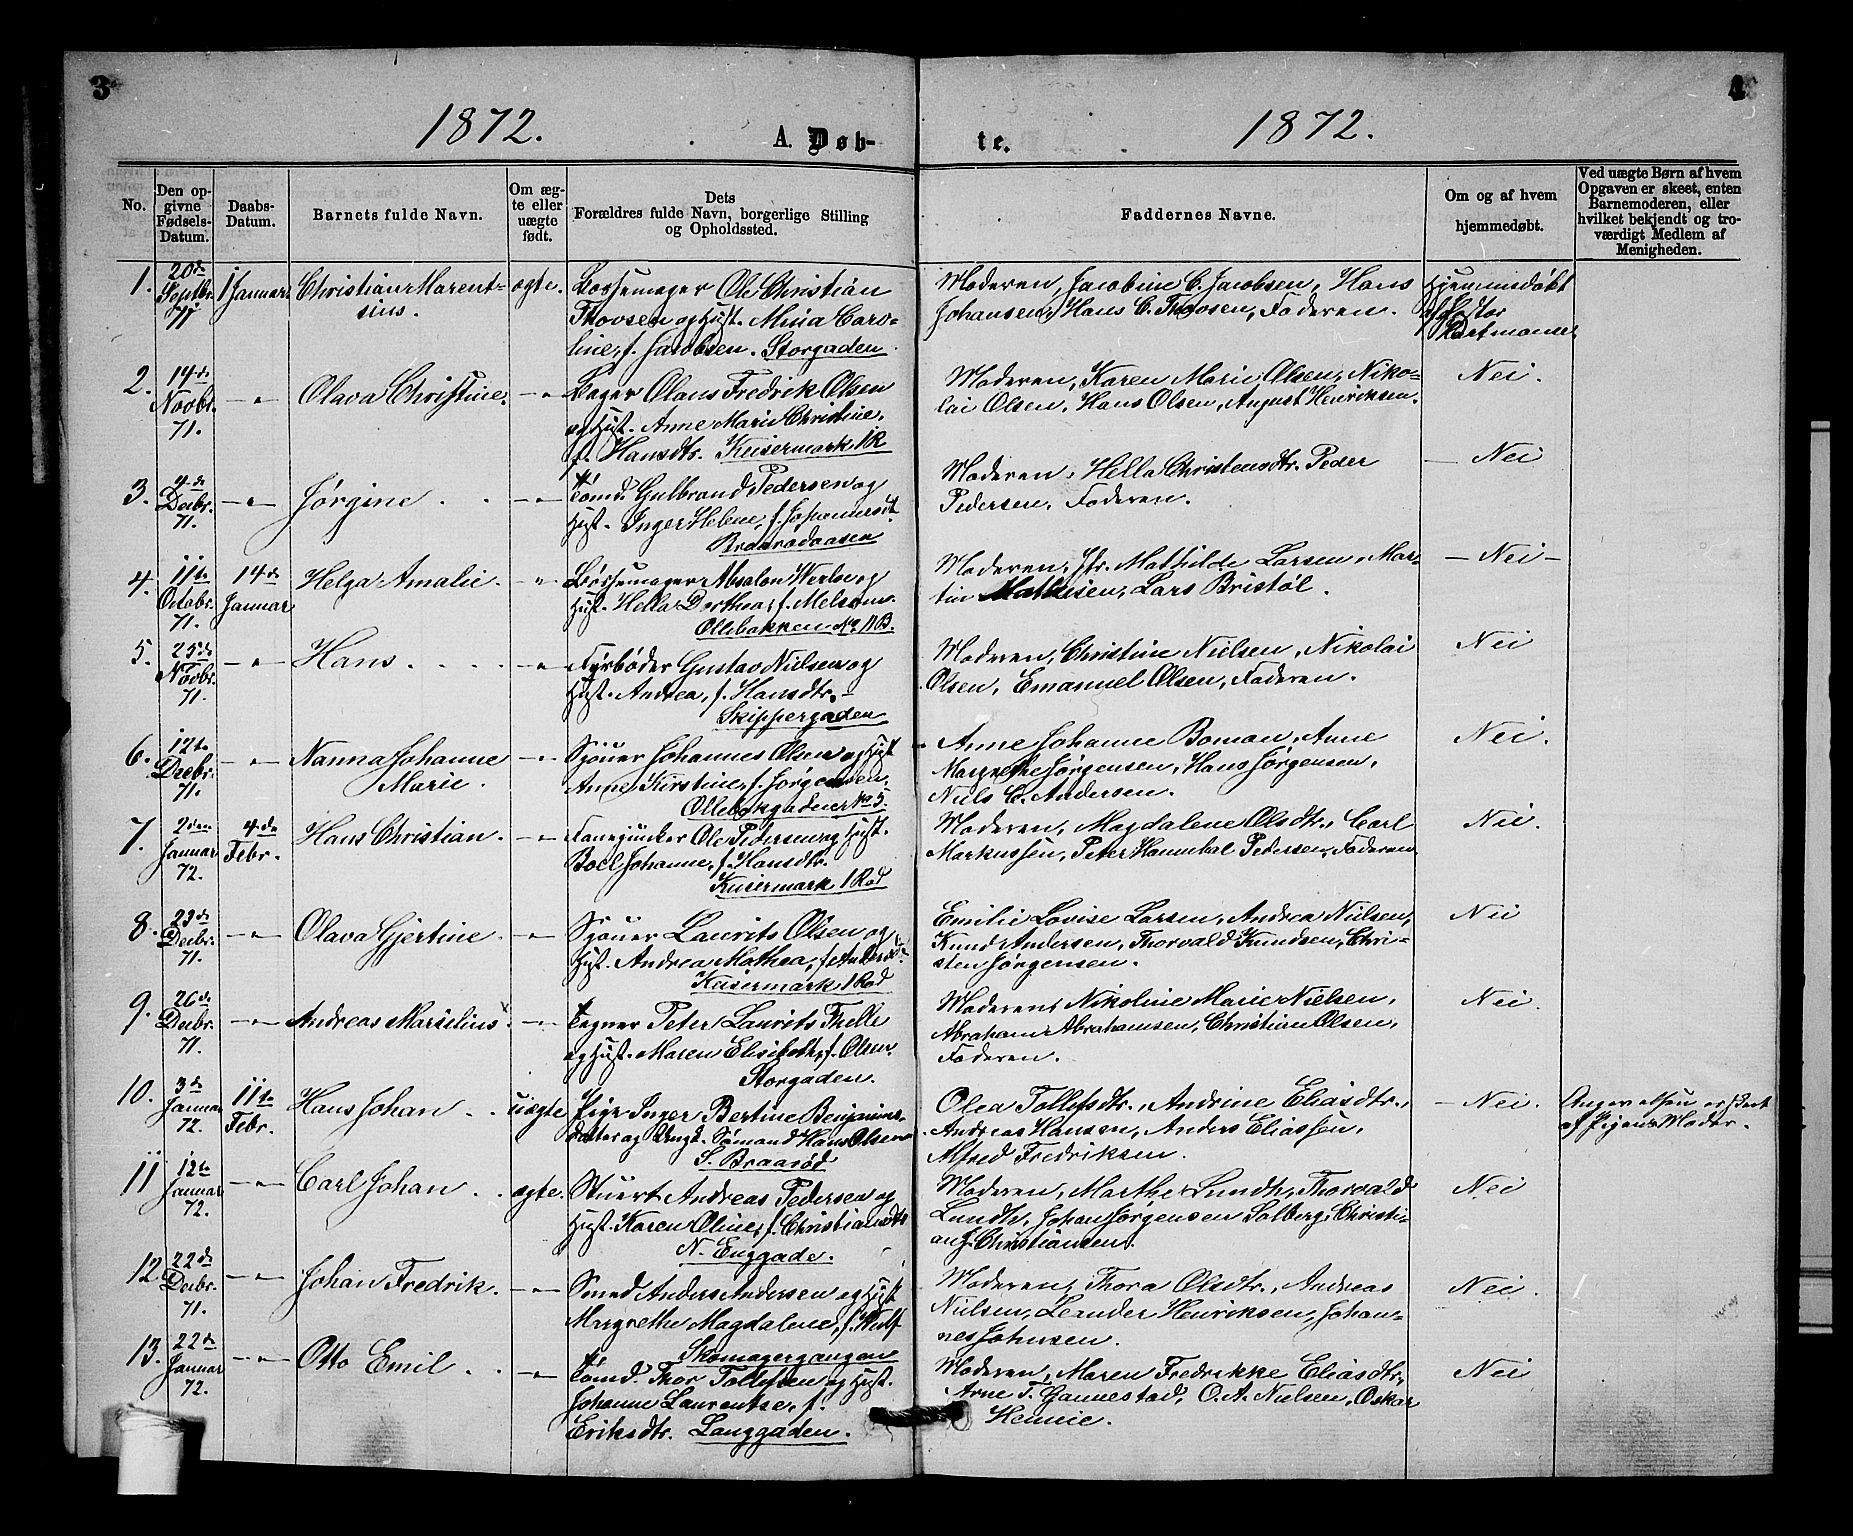 3
4
1872.
A. Døb-
te.
1872.
No.
Den op-
givne
Fødsels-
Datum.
Daabs-
Datum.
Barnets fulde Navn.
Om æg-
te eller
uægte
født.
Dets
Forældres fulde Navn, borgerlige Stilling
og Opholdssted.
Faddernes Navne.
Om og af hvem
hjemmedøbt.
Ved uægte Børn af hvem
Opgaven er skeet, enten
Barnemoderen, eller
hvilket bekjendt og tro-
værdigt Medlem af
Menigheden.
1.
20de
Septbr.
71
1 Januar
Christian Marent-
sius.
ægte.
Bøssemager Ole Christian
Thovsen og Hust. Mina Caro-
line, f. Jacobsen. Storgaden.
Moderen, Jacobine C. Jacobsen, Hans
Johansen, Hans C. Thovsen, Faderen.
Hjemmedøbt
af Pastor
2.
14de
Novbr.
71.
-"-
Olava Christine.
-"-
Bager Olaus Fredrik Olsen
og Hust. Anne Marie Christine,
f. Hansdtr. Keisermark 1 R
Moderen, Karen Marie Olsen, Niko-
lai Olsen, Hans Olsen, August Henriksen.
Nei.
3.
4de
Decbr.
71.
-"-
Jørgine
-"-
Tømd. Gulbrand Pedersen og
Hust. Inger Helene, f. Johannesdt.
Braarødaasen
Moderen, Hella Christensdtr. Peder
Pedersen, Faderen.
- Nei
4.
11te
Octobr.
71.
14de
Januar
Helga Amalie.
-"-
Bøssemager Absalon og
Hust. Hella Dorthea, f. Melsom.
Ollebakken No. 11 B.
Moderen, Jfr. Mathilde Larsen, Mar-
tin Mathisen, Lars Bristøl.
- Nei -
5.
25de
Novbr.
71.
-"-
Hans.
-"-
Fyrbøder Gustav Nielsen og
Hust. Andrea, f. Hansdtr.
Skippergaden
Moderen, Christine Nielsen, Nikolai
Olsen, Emanuel Olsen, Faderen.
Nei
6.
12te
Decbr.
71.
-"-
Nanna Johanne
Marie.
-"-
Sjøuer Johannes Olsen og Hust
Anne Kirstine, f. Jørgensen.
Anne Johanne Boman, Anne
Margrethe Jørgensen, Hans Jørgensen,
Niels C. Andersen.
Nei.
7.
2den
Januar
72.
4de
Febr.
Hans Christian
-"-
Fanejunker Ole Pedersen og Hust.
Boel Johanne, f. Hansdtr.
Keisermark 1 Rad
Moderen, Magdalene Olsdtr., Carl
Markussen, Peter Hannibal Pedersen, Faderen.
Nei.
8.
23de
Decbr.
71.
-"-
Olava Gjertine
-"-
Sjøuer Laurits Olsen og
Hust. Andrea Mathea, f. Andersdtr.
Keisermark 1 Rad
Emilie Lovise Larsen, Andrea Nielsen,
Knud Andersen, Thorvald Knudsen, Chri-
sten Jørgensen.
Nei
9.
26de
Decbr.
71.
-"-
Andreas Marselius
-"-
Tegner Peter Laurits Thelle
og Hust. Maren Elisabeth, f. Olsen.
Storgaden.
Moderen, Nikoline Marie Nielsen,
Abraham Abrahamsen, Christian Olsen,
Faderen.
Nei.
10.
3de
Januar
72.
11te
Febr.
Hans Johan
uægte
Pige Inger Bertine Benjamins-
datter og Ungk. Sømand Hans Olsen
S. Braarød
Olea Tollefsdtr., Andrine Eliasdtr.,
Andreas Hansen, Anders Eliassen,
Alfred Fredriksen.
- Nei.
Angivelsen er skeet
af Pigens Moder.
11
12te
Januar
72.
-"-
Carl Johan
ægte.
Stuert Andreas Pedersen og
Hust. Karen Oline, f. Christiansdtr
N. Enggade.
Moderen, Marthe Lundh, Thorvald
Lundh, Johan Jørgensen Solberg, Christi-
an J. Christiansen.
Nei
12
22de
Decbr.
71.
-"-
Johan Fredrik.
-"-
Smed Anders Andersen og Hust
Margrethe Magdalene, f. Wulf
Skomagergangen
Moderen, Thora Olsdtr., Andreas
Nielsen, Leander Henriksen, Johan-
nes Johnsen.
Nei.
13.
22de
Januar
72.
-"-
Otto Emil
-"-
Tømd. Thor Tollefsen og Hust.
Johanne Laurentse, f.
Eriksdtr. Langgaden.
Moderen, Maren Fredrikke Eliasdtr.,
Arne T. Gannestad, O. A. Nielsen, Oskar
Hennie.
Nei